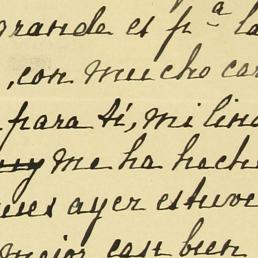 grande es pª la
, con mucho car
para tí, mi lind
me ha hech
ues ayer estuve
mejor, casi bien